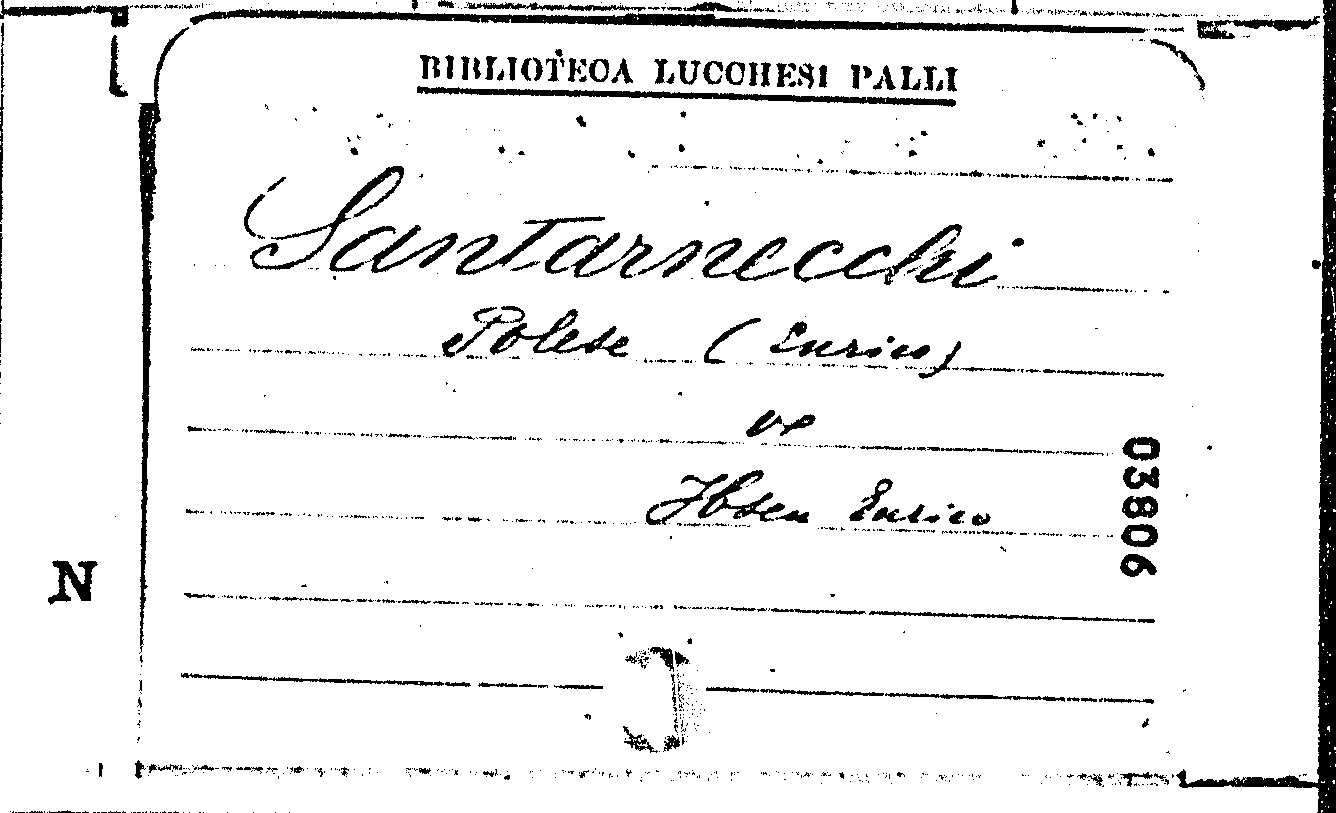 BIBLIOTECA LUCCHESI PALLI
Santarnecchi
Polese (Enrico)
ve
Ibsen Enrico
03806
N